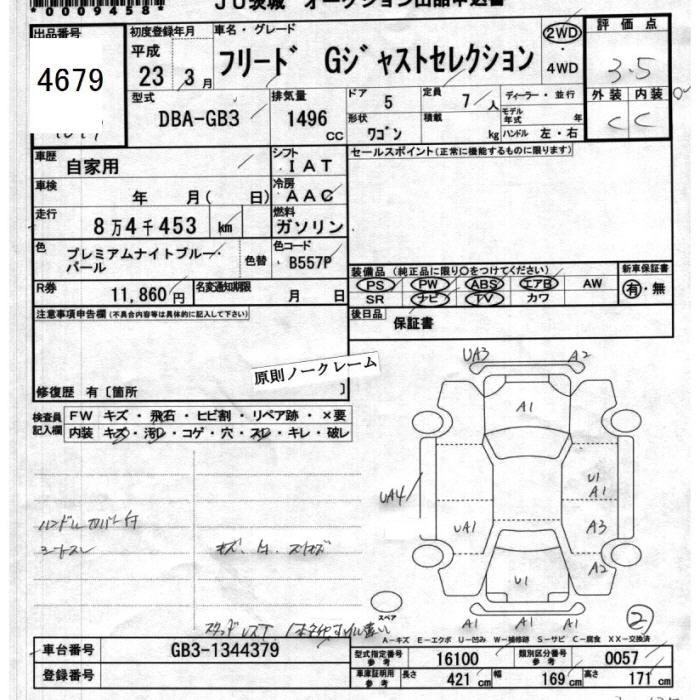 *00094584*
JU茨城 オークション出品申込書
出品番号 初度登録年月 車名・グレード 評価点
4679
平成 23年 3月
フリード Gジャストセレクション
2WD・4WD
3.5
外装 内装
C C
型式 DBA-GB3
排気量 1496 CC
ドア 5 定員 7人 ディーラー・並行
形状 ワゴン 積載 kg モデル年式 年
ハンドル 左・右
車歴 自家用
シフト IAT
セールスポイント(正常に機能するものに限ります)
車検 年 月( 日)
冷房 AAC
走行 8万4千453 km
燃料 ガソリン
色 プレミアムナイトブルー・パール 色替
色コード B557P
装備品(純正品に限り○をつけてください) 新車保証書
PS PW ABS エアB AW 有・無
SR ナビ TV カワ
R券 11,860円
名変通知期限 月 日
後日品 保証書
注意事項申告欄(不具合内容等は具体的に記入して下さい)
原則ノークレーム
修復歴 有〔箇所 〕
検査員記入欄
FW キズ・飛石・ヒビ割・リペア跡・×要
内装 キズ・汚れ・コゲ・穴・スレ・キレ・破レ
UA3 A2
A1
U1
A1
UA4
UA1 A3
A2
U1
A1 A1 A1
2
ハンドルカバー付
シートスレ
スペア
A-キズ E-エクボ U-凹み W-補修跡 S-サビ C-腐食 XX-交換済
車台番号 GB3-1344379
型式指定番号 参考 16100 類別区分番号 参考 0057
登録番号
車庫証明用 参考 長さ 421 cm 幅 169 cm 高さ 171 cm